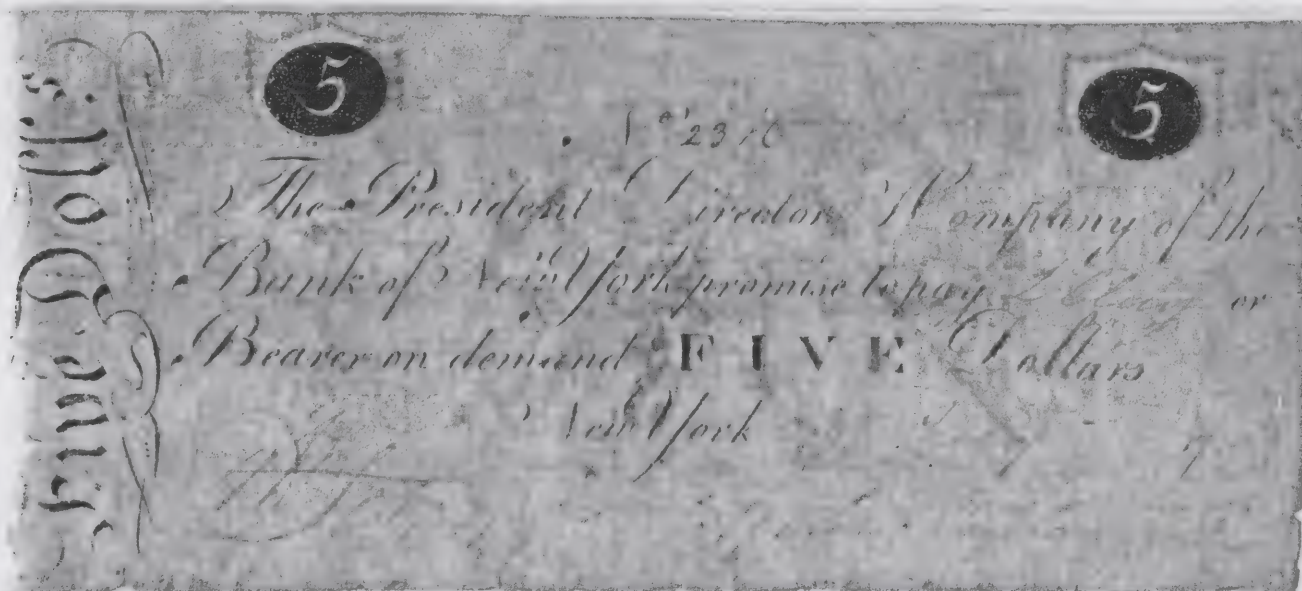 Five Doll.s
5 5
No. 2310
The President Directors & Company of the
Bank of New York promise to pay or
Bearer on demand FIVE Dollars
New York